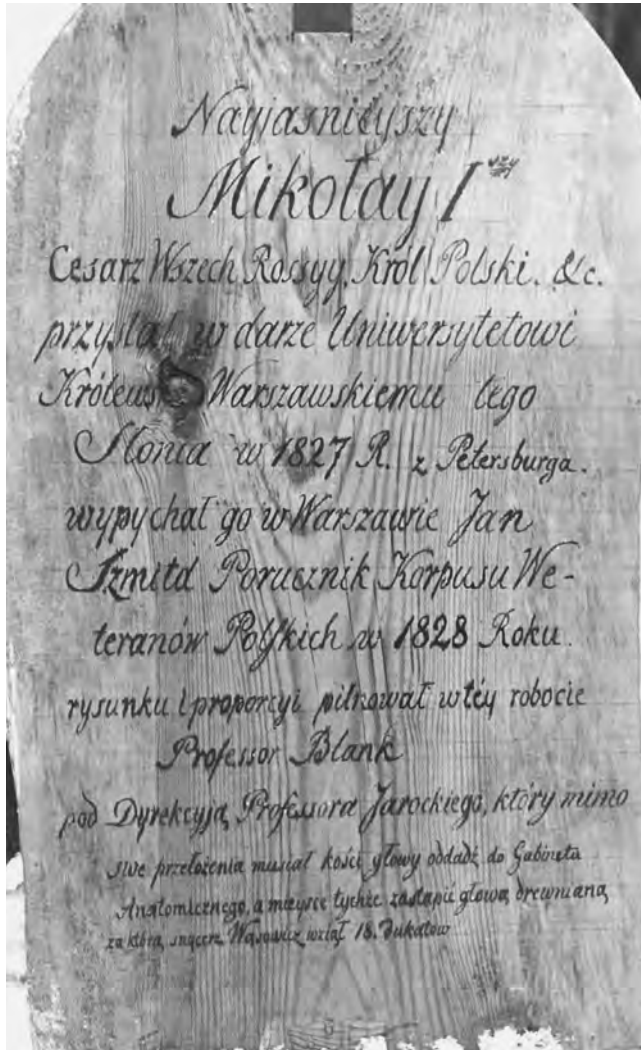 Nayjasnieyszy
Mikołay I wszy
Cesarz Wszech Rossyy, Król Polski. &c.
przysłał w darze Uniwersytetowi
Królewsk. Warszawskiemu tego
Słonia w 1827 R. z Petersburga.
wypychał go w Warszawie Jan
Szmitd Porucznik Korpusu We-
teranów Polſkich w 1828 Roku.
rysunku i proporcyi pilnował w téy robocie
Professor Blank
pod Dyrekcyją Professora Jarockiego, który mimo
swe przełożenia musiał kości głowy oddadź do Gabinetu
Anatomicznego, a mieysce tychże zastąpić głową drewnianą
za którą snycerz Wąsowicz wziął 18. Dukatów